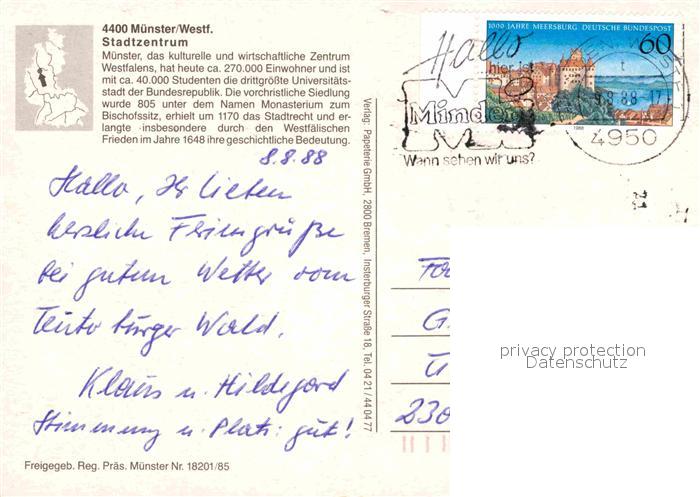 4400 Münster/Westf.
Stadtzentrum
Münster, das kulturelle und wirtschaftliche Zentrum
Westfalens, hat heute ca. 270.000 Einwohner und ist
mit ca. 40.000 Studenten die drittgrößte Universitäts-
stadt der Bundesrepublik. Die vorchristliche Siedlung
wurde 805 unter dem Namen Monasterium zum
Bischofssitz, erhielt um 1170 das Stadtrecht und er-
langte insbesondere durch den Westfälischen
Frieden im Jahre 1648 ihre geschichtliche Bedeutung.
8.8.88
Hallo, Ihr Lieben
herzliche Feriengrüße
bei gutem Wetter vom
Teutoburger Wald.
Klaus u. Hildegard
Stimmung u. Platz: gut!
Freigegeb. Reg. Präs. Münster Nr. 18201/85
Verlag: Papeterie GmbH, 2800 Bremen, Insterburger Straße 18, Tel. 04 21 / 44 04 77
Hallo
hier ist
Minden
Wann sehen wir uns?
1000 JAHRE MEERSBURG DEUTSCHE BUNDESPOST
60
1988
88-17
4950
230
privacy protection
Datenschutz